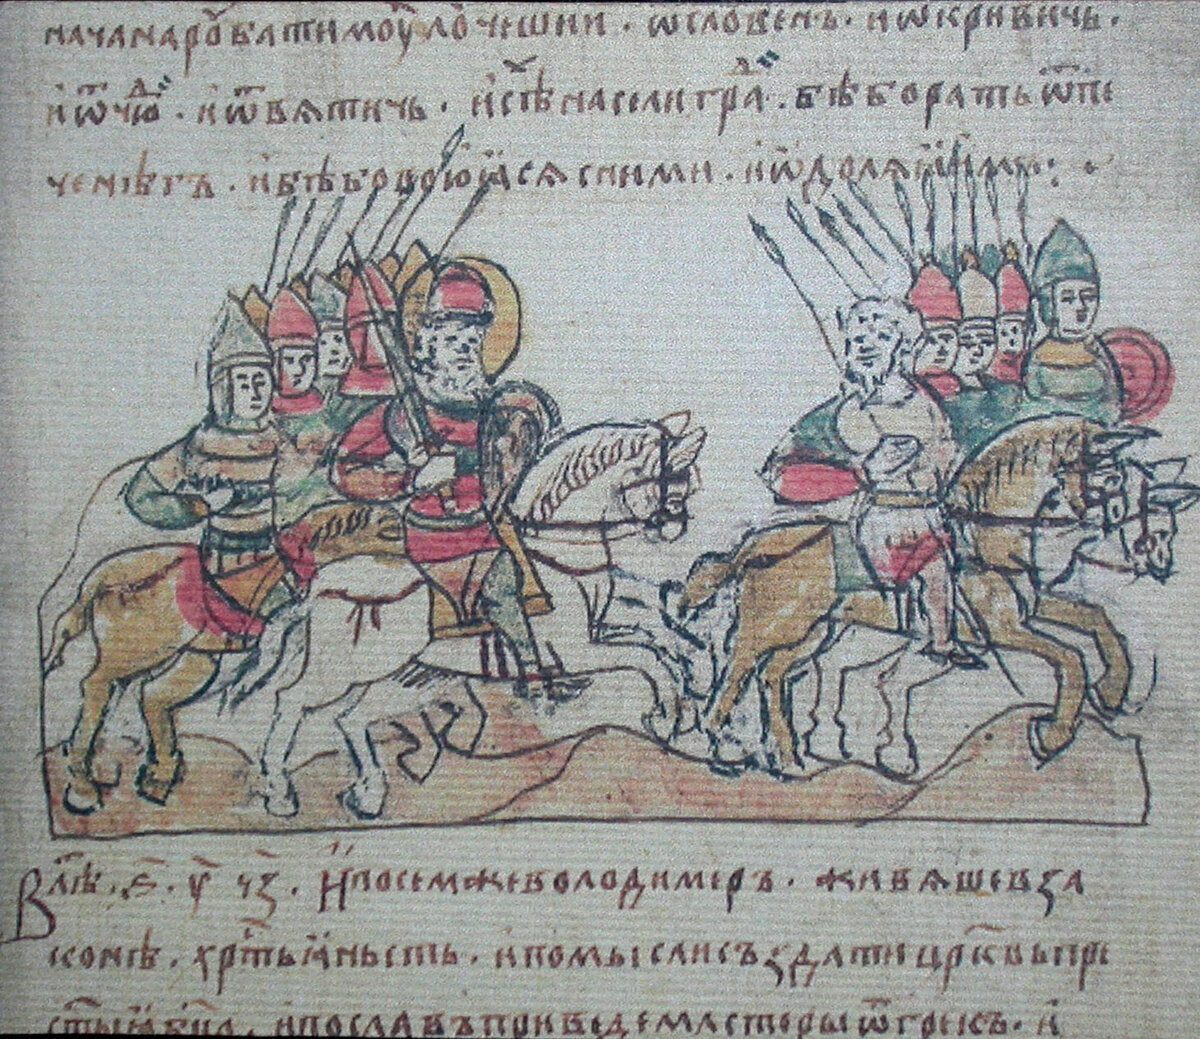 нача нарѹбати моу҄ лѹчешии · ѿ словенъ · и ѿ кривичь ·
и ѿ чюⷣ · и ѿ вѧтичь · и сиⷯ насели граⷣ · бѣ бо рать ѿ пе
ченѣгъ · и бѣ бо воюꙗсѧ с ними · и ѡдолѧꙗ имъ :·
В лѣⷮ · ҂ѕ҃ · у҃ · ч҃з · И посемже володимеръ · живѧше в за
конѣ · хрⷭ҇тьꙗньсть · и помысли създати цр҃квь прⷭ
ст҃ыꙗ бц҃а · и пославъ приведе мастеры ѿ грекъ · и